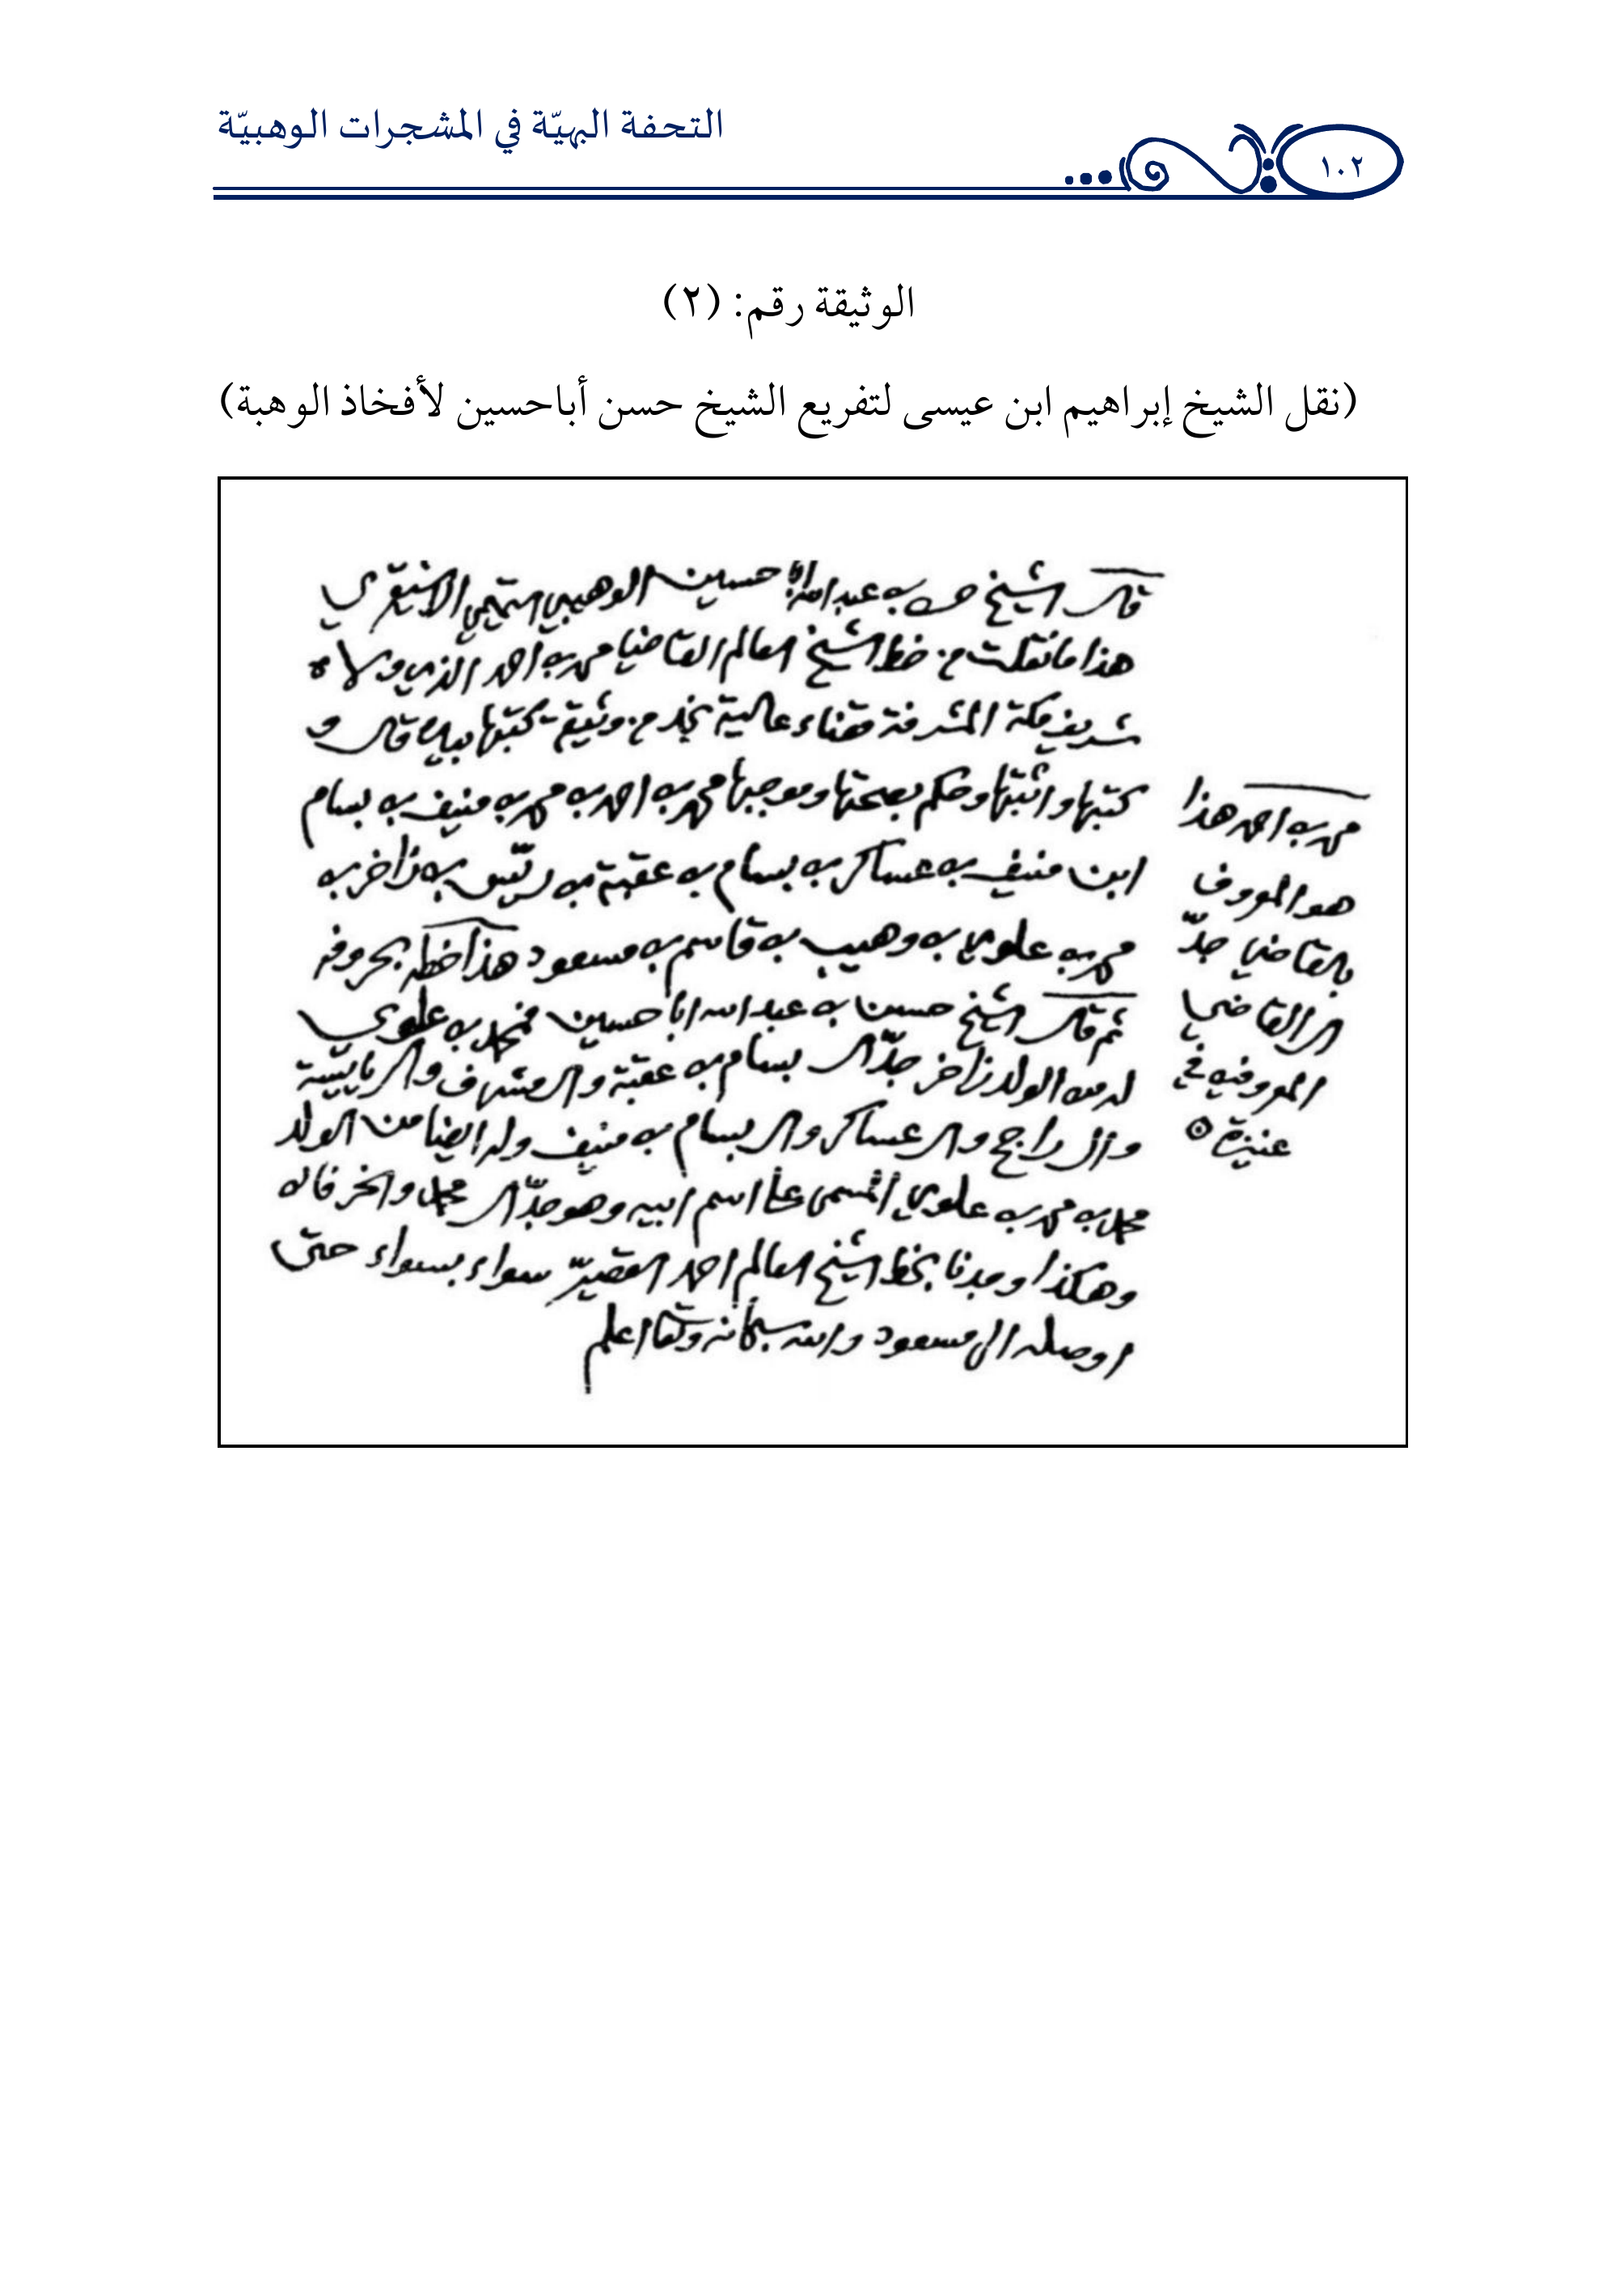 التحفة البهيّة في المشجرات الوهبيّة
١٠٢
الوثيقة رقم: (٢)
(نقل الشيخ إبراهيم ابن عيسى لتفريع الشيخ حسن أباحسين لأفخاذ الوهبة)
قال الشيخ حسن بن عبدالله ابا حسين الوهيبي التميمي الاشيقري
هذا ما نقلت من خط الشيخ العالم القاضي محمد بن احمد الذي ولاه
شريف مكة المشرفة قضاء عالية نجد من وثيقة كتبها بيده قال و
كتبها واثبتها وحكم بصحتها وموجبها محمد بن احمد بن محمد بن منيف بن بسام
ابن منيف بن عساكر بن بسام بن عقبة بن ريّس بن زاخر بن
محمد بن علوي بن وهيب بن قاسم بن مسعود هذا خطه بحروفه
ثم قال الشيخ حسين بن عبدالله ابا حسين فمحمد بن علوي
له من الولد زاخر جدّ ال بسام بن عقبة وال مشرف وال ريايسة
وال راجح وال عساكر وال بسام بن منيف وله ايضا من الولد
محمد بن محمد بن علوي المسمى على اسم ابيه وهو جدّ ال محمد والخرفان
وهكذا وجدنا بخط الشيخ العالم احمد القصيّر سواء بسواء حتى
اوصله الى مسعود والله سبحانه وتعالى اعلم
محمد بن احمد هذا
هو المعروف
بالقاضي جدّ
ال القاضي
المعروفين في
عنيزة